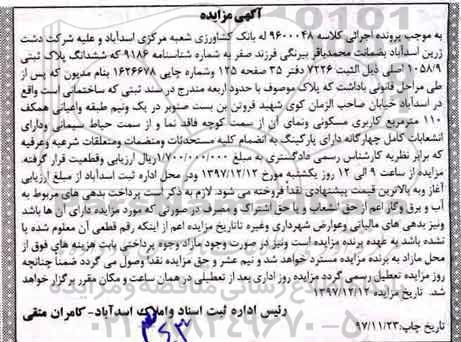 آگهی مزایده
به موجب پرونده اجرائی کلاسه ۹۶۰۰۰۴۸ له بانک کشاورزی شعبه مرکزی اسدآباد و علیه شرکت دشت
زرین اسدآباد بضمانت محمدباقر بیرنگی فرزند صفر به شماره شناسنامه ۹۱۸۶ که ششدانگ پلاک ثبتی
۱۰۵۸/۹ اصلی ذیل الثبت ۷۲۲۶ دفتر ۳۵ صفحه ۱۲۵ وشماره چاپی ۱۶۲۶۶۷۸ بنام مدیون که پس از
طی مراحل قانونی باداشت که پلاک موصوف با حدود اربعه مندرج در سند ثبتی که ساختمانی است واقع
در اسدآباد خیابان صاحب الزمان کوی شهید فروتن بن بست صنوبر در یک ونیم طبقه واعیانی همکف
۱۱۰ مترمربع کاربری مسکونی ونمای آن از سمت کوچه فاقد نما و از سمت حیاط سیمانی ودارای
انشعابات کامل چهارگانه دارای پارکینگ به انضمام کلیه مستحدثات ومنضمات ومتعلقات شرعیه وعرفیه
که برابر نظریه کارشناس رسمی دادگستری به مبلغ ۱/۷۰۰/۰۰۰/۰۰۰ریال ارزیابی وقطعیت قرار گرفته.
مزایده از ساعت ۹ الی ۱۲ روز یکشنبه مورخ ۱۳۹۷/۱۲/۱۲ ودر محل اداره ثبت اسدآباد از مبلغ ارزیابی
آغاز وبه بالاترین قیمت پیشنهادی نقداً فروخته می شود. لازم به ذکر است پرداخت بدهی های مربوط به
آب و برق وگاز اعم از حق انشعاب و یا حق اشتراک و مصرف در صورتی که مورد مزایده دارای آن ها باشد
ونیز بدهی های مالیاتی وعوارض شهرداری وغیره تاتاریخ مزایده اعم از اینکه رقم قطعی آن معلوم شده یا
نشده باشد به عهده برنده مزایده است ونیز در صورت وجود مازاد وجوه پرداختی بابت هزینه های فوق از
محل مازاد به برنده مزایده مسترد خواهد شد و نیم عشر و حق مزایده نقداً وصول می گردد ضمناً چنانچه
روز مزایده تعطیل رسمی گردد مزایده روز اداری بعد از تعطیلی در همان ساعت و مکان مقرر برگزار خواهد
شد. تاریخ مزایده ۱۳۹۷/۱۲/۱۲
رئیس اداره ثبت اسناد واملاک اسدآباد- کامران متقی
تاریخ چاپ:۹۷/۱۱/۲۳